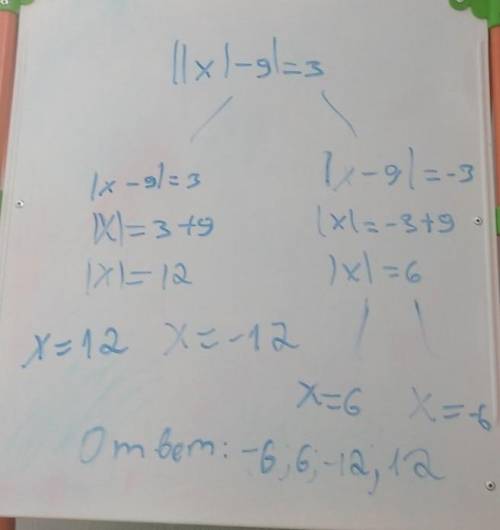 ||x|-9|=3
|x-9|=3 |x-9|=-3
|x|=3+9 |x|=-3+9
|x|=12 |x|=6
x=12 x=-12
x=6 x=-6
Ответ: -6; 6; -12; 12